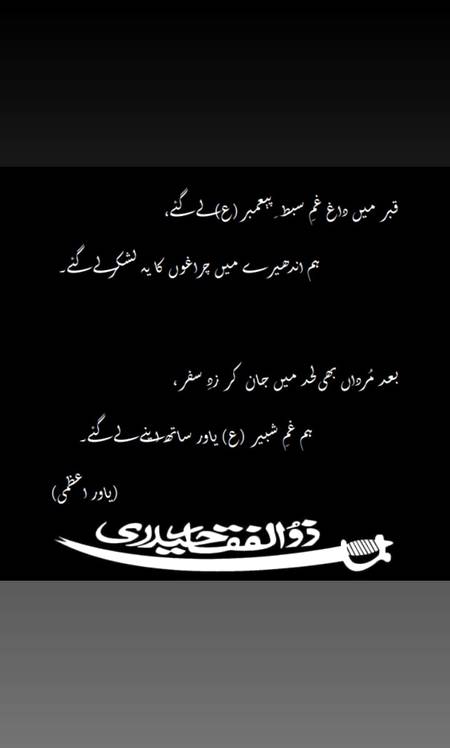 قبر میں داغِ غمِ سبط ِ پیعمبر (ع) لے گئے،
ہم اندھیرے میں چراغوں کا یہ لشکر لے گئے۔
بعد مُرداں بھی لحد میں جان کر زدِ سفر،
ہم غمِ شبیر (ع) یاور ساتھ اپنے لے گئے۔
(یاور اعظمی)
ذُوالفقار حیدری